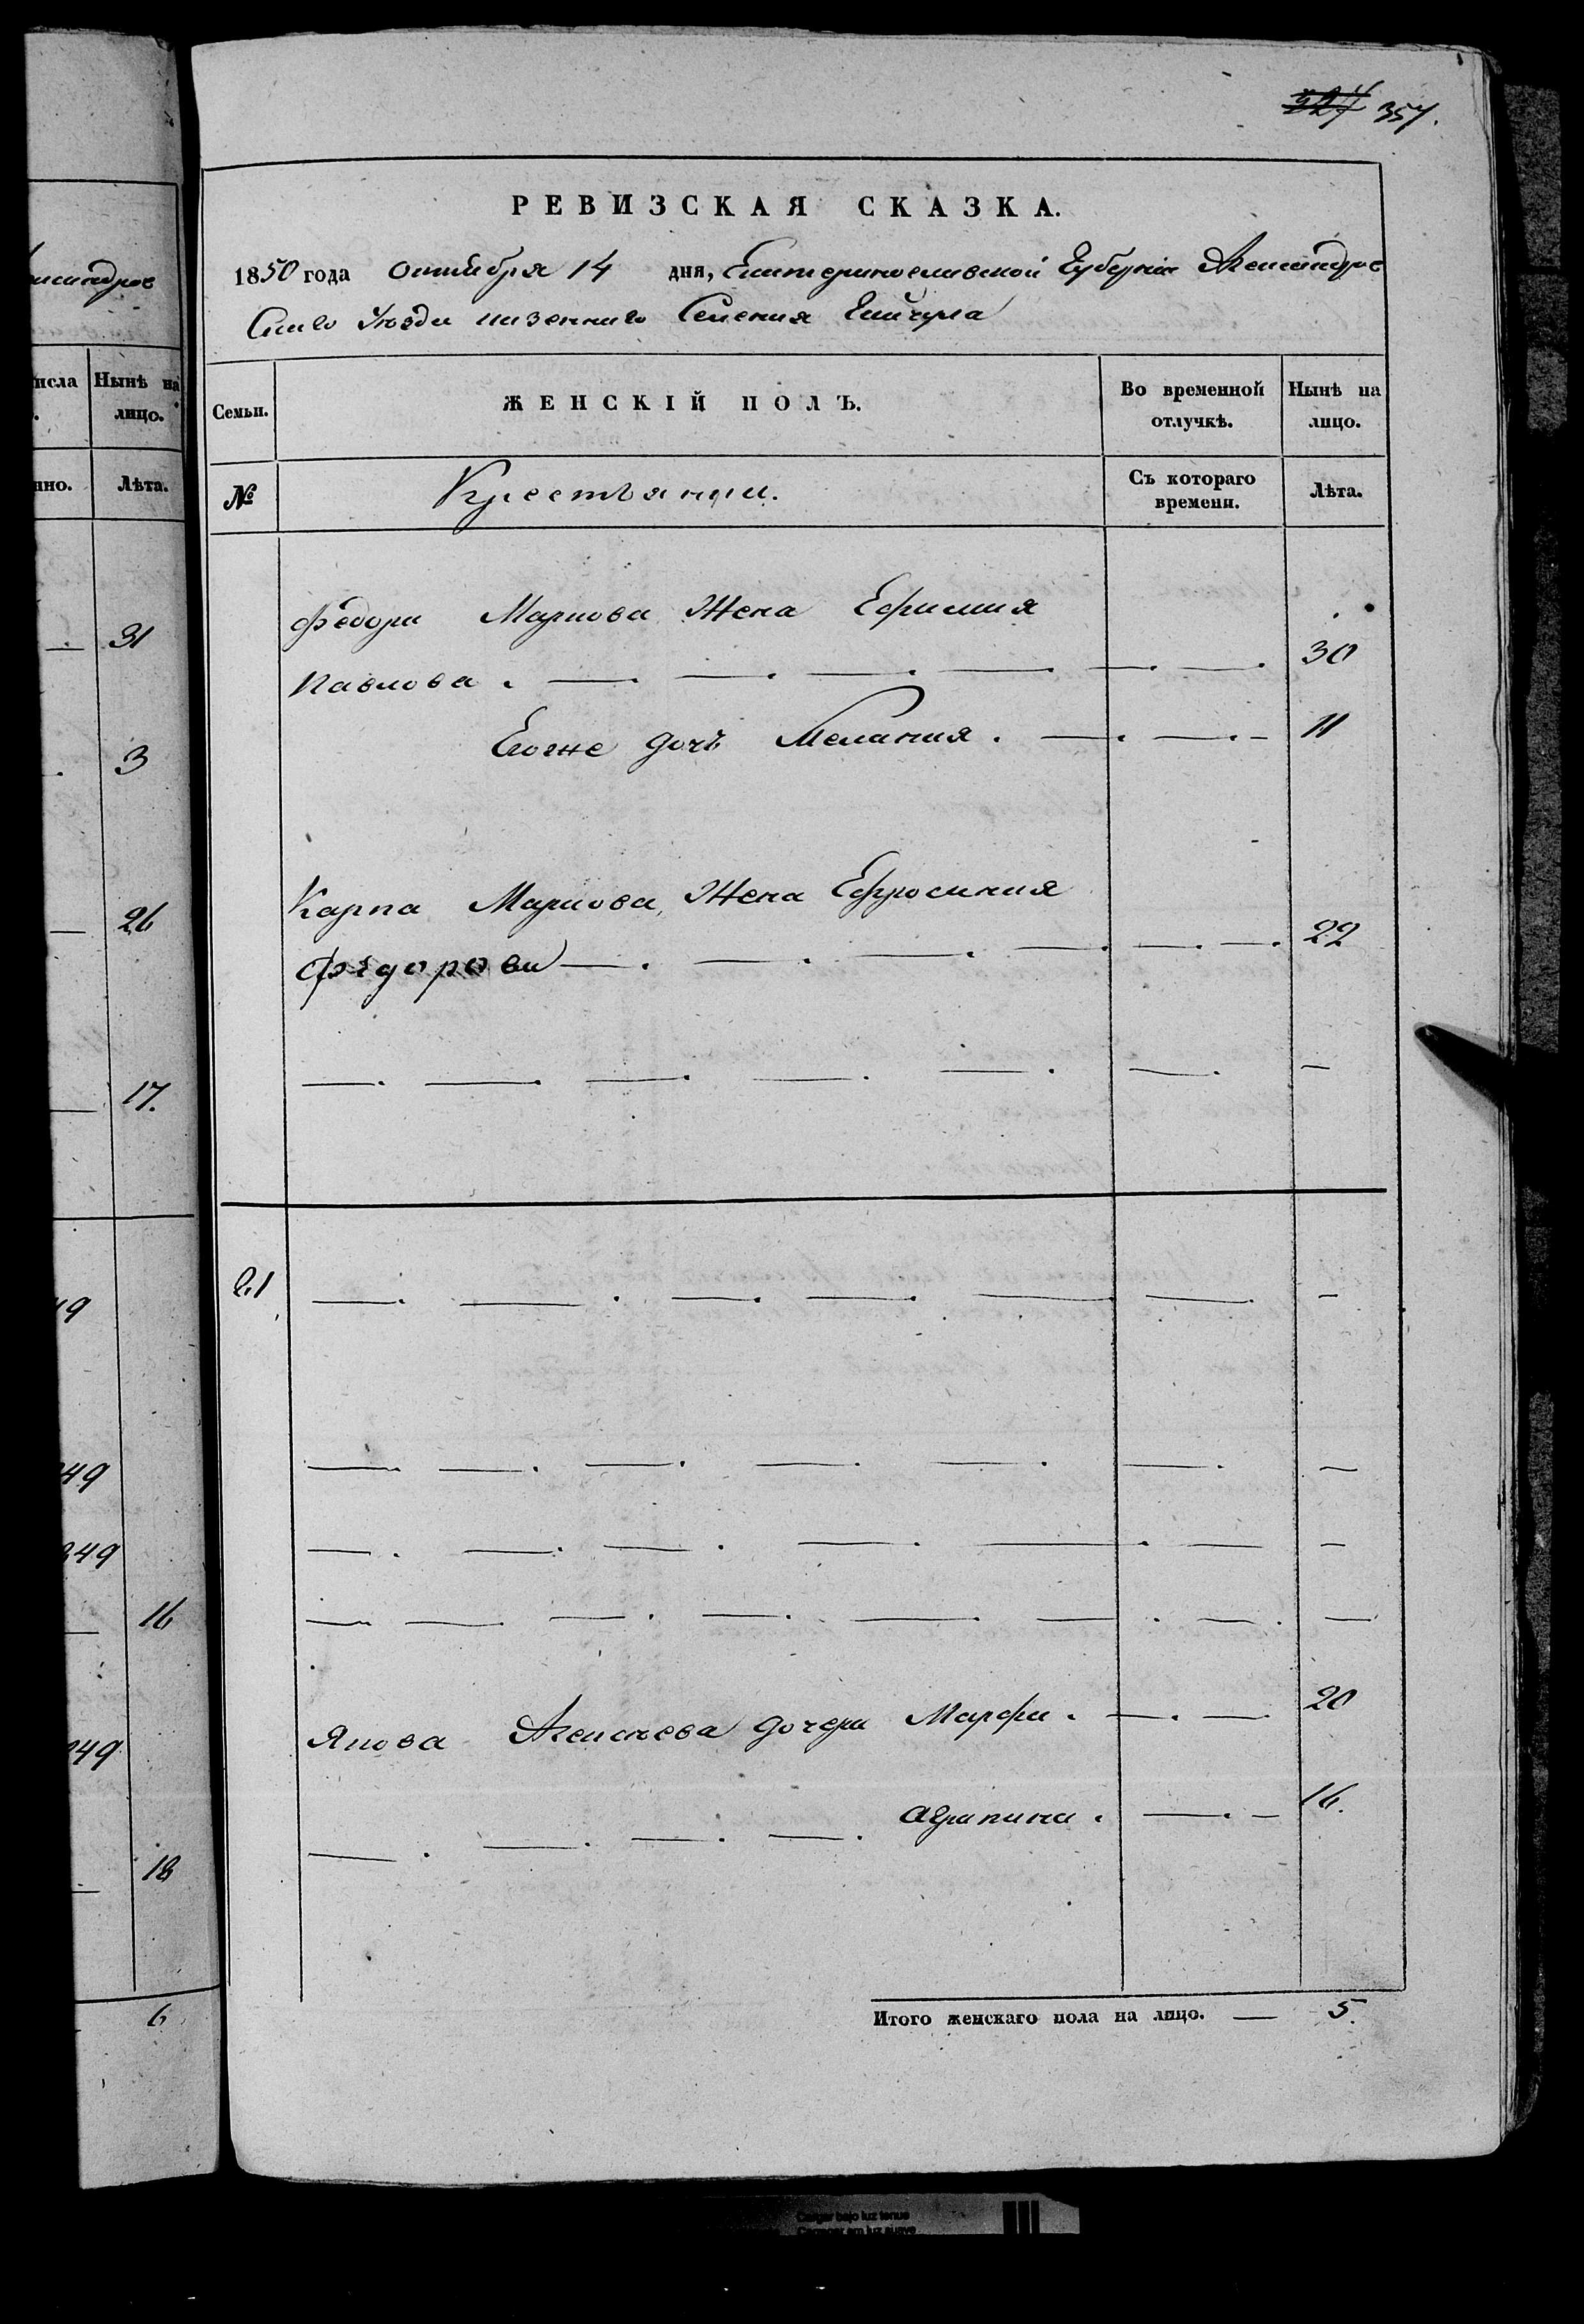 357.
РЕВИЗСКАЯ СКАЗКА.
1850 года октября 14 дня, Екатеринославской Губернии Александров
Скаго Уѣзда казеннаго Селения Гайчула
Семьи.
ЖЕНСКІЙ ПОЛЪ.
Во временной отлучкѣ.
Нынѣ на лицо.
№
Крестьянки.
Съ котораго времени.
Лѣта.
Федора Маркова Жена Ефимия
Павлова. 30
Егоже дочь Мелания. 11
Карпа Маркова, Жена Ефросиния
Федорова 22
21
Якова Алексѣева дочери Марфа. 20
Агрипина. 16.
Итого женскаго пола на лицо. — 5.
Нынѣ на
лицо.
Лѣта.
31
3
26
17.
49
249
16
249
18
6